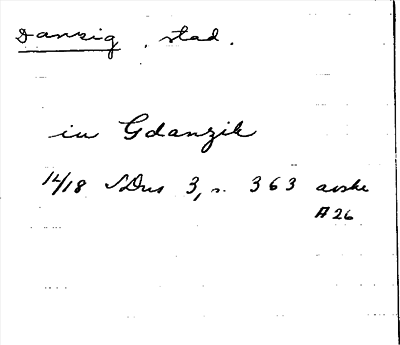 Danzig, stad.
in Gdanzik
14/18 SDns 3, s. 363 avskr
A 26